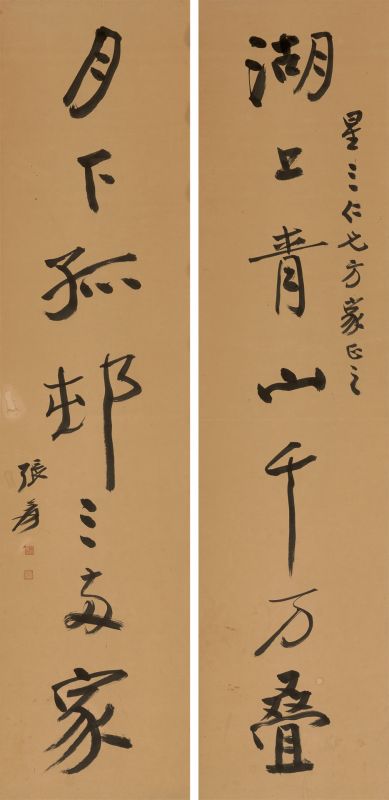 星三仁兄方家正之
湖上青山千万叠
月下孤邨三兩家
張爰